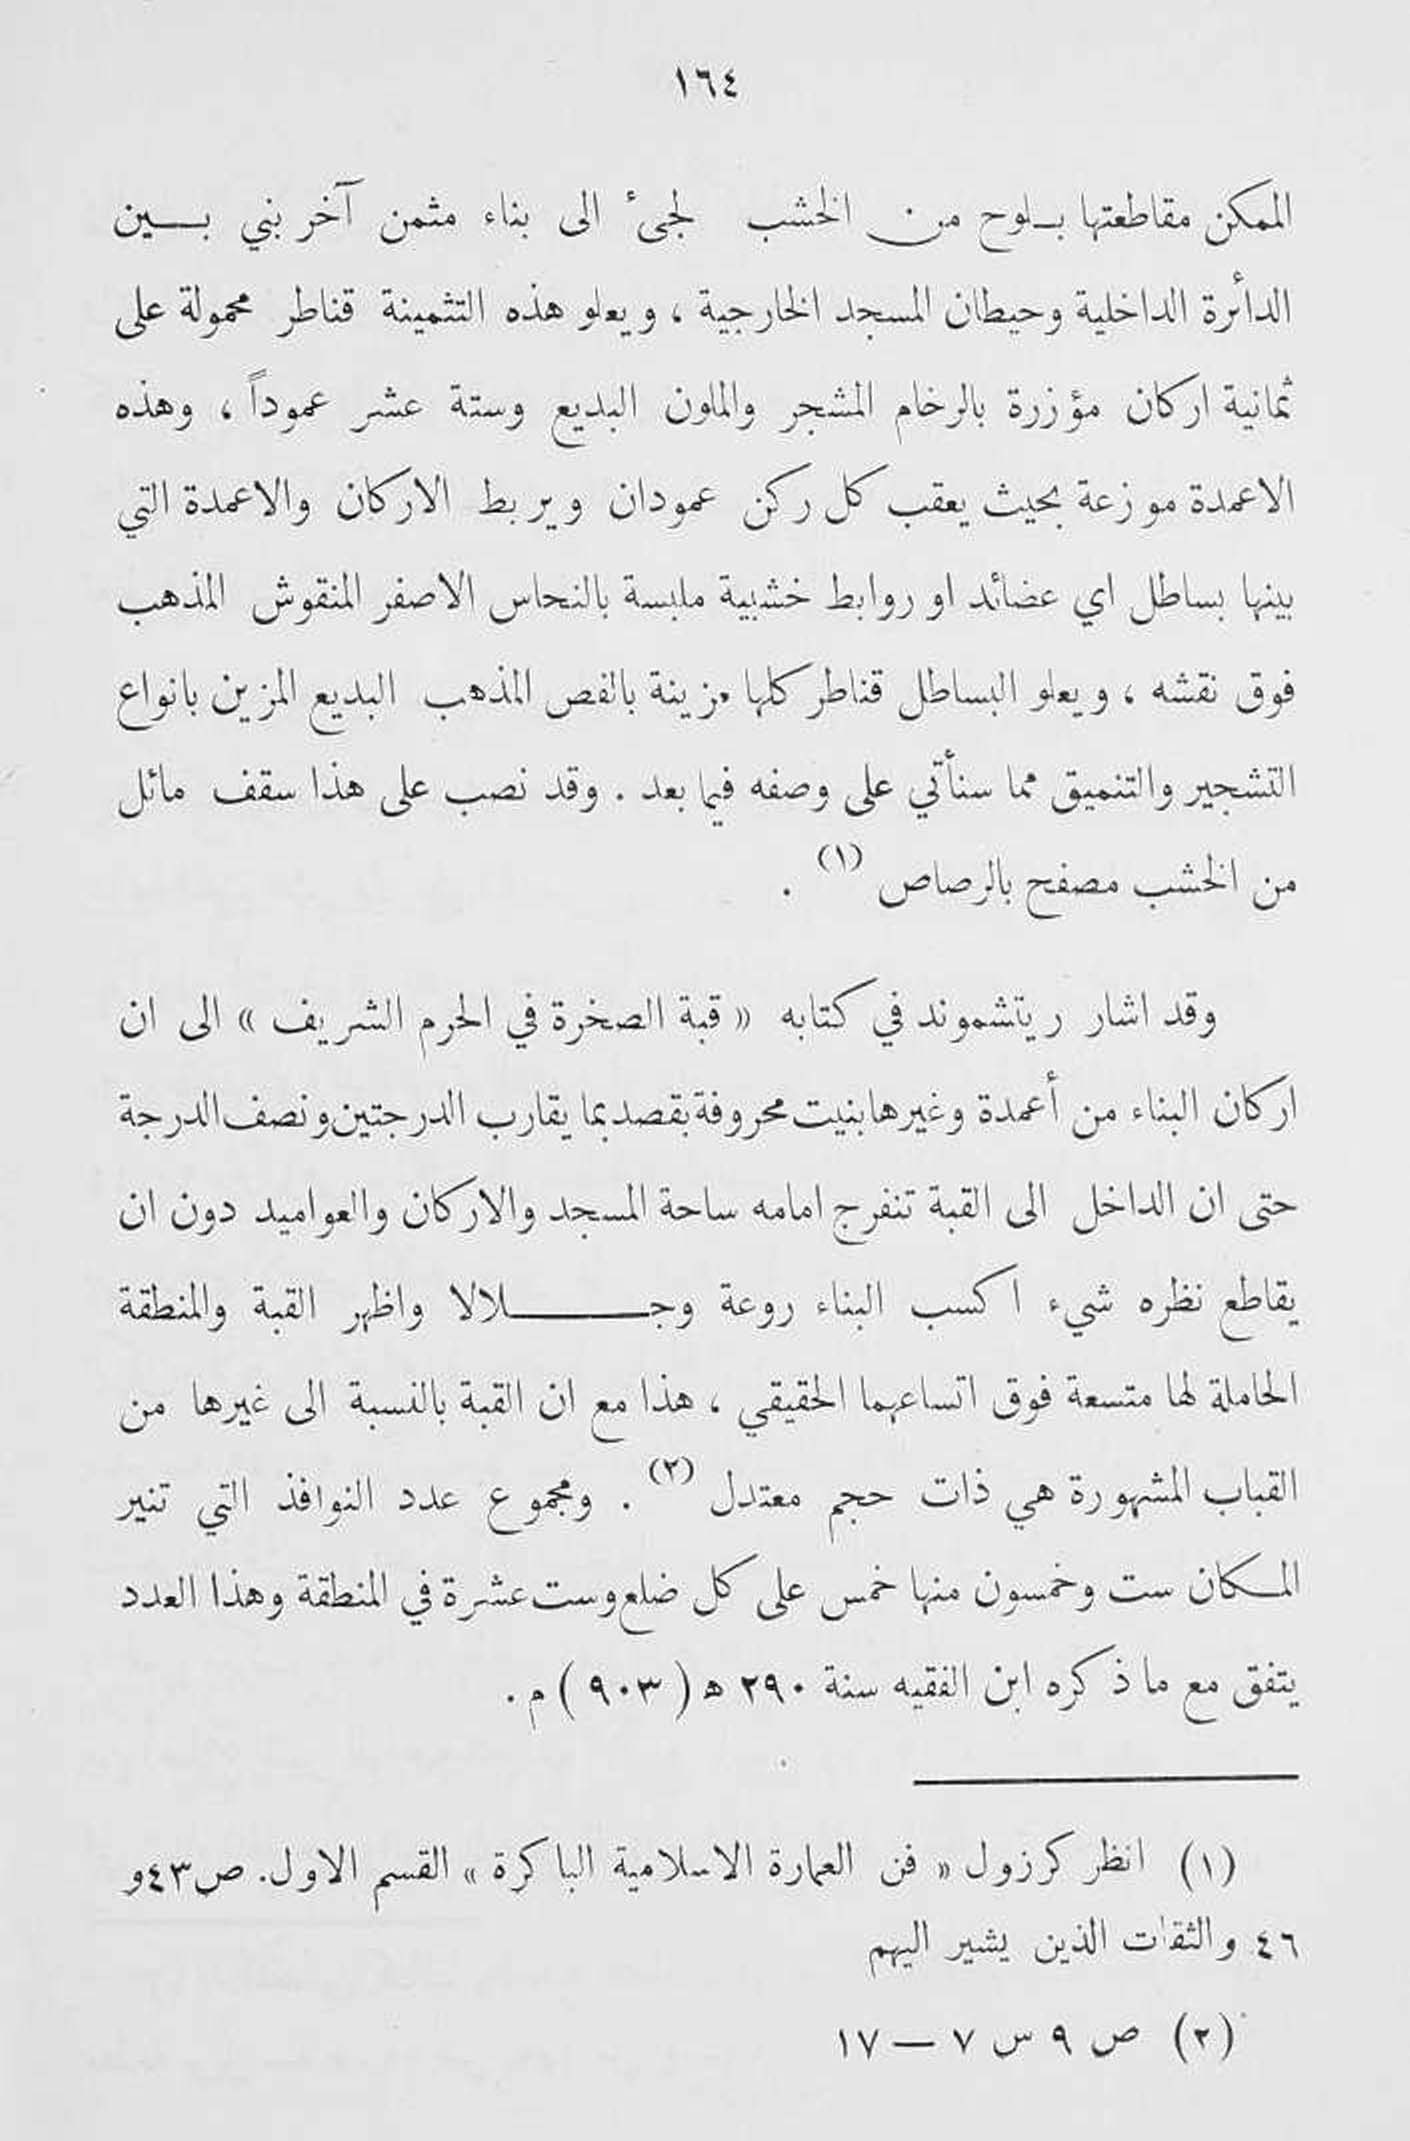 ١٦٤
الممكن مقاطعتها بلوح من الخشب لجىء الى بناء مثمن آخر بني بين
الدائرة الداخلية وحيطان المسجد الخارجية ، ويعلو هذه التثمينة قناطر محمولة على
ثمانية اركان مؤزرة بالرخام المشجر والملون البديع وستة عشر عموداً ، وهذه
الاعمدة موزعة بحيث يعقب كل ركن عمودان ويربط الاركان والاعمدة التي
بينها بساطل اي عضائد او روابط خشبية ملبسة بالنحاس الاصفر المنقوش المذهب
فوق نقشه ، ويعلو البساطل قناطر كلها مزينة بالفص المذهب البديع المزين بانواع
التشجير والتنميق مما سنأتي على وصفه فيما بعد . وقد نصب على هذا سقف مائل
من الخشب مصفح بالرصاص (١) .
وقد اشار ريتشموند في كتابه « قبة الصخرة في الحرم الشريف » الى ان
اركان البناء من أعمدة وغيرها بنيت محروفة بقصد بما يقارب الدرجتين ونصف الدرجة
حتى ان الداخل الى القبة تنفرج امامه ساحة المسجد والاركان والعواميد دون ان
يقاطع نظره شيء اكسب البناء روعة وجلالا واظهر القبة والمنطقة
الحاملة لها متسعة فوق اتساعهما الحقيقي ، هذا مع ان القبة بالنسبة الى غيرها من
القباب المشهورة هي ذات حجم معتدل (٢) . ومجموع عدد النوافذ التي تنير
المكان ست وخمسون منها خمس على كل ضلع وست عشرة في المنطقة وهذا العدد
يتفق مع ما ذكره ابن الفقيه سنة ٢٩٠ ه ( ٩٠٣ ) م .
(١) انظر كرزول « فن العمارة الاسلامية الباكرة » القسم الاول. ص٤٣و
٤٦ والثقات الذين يشير اليهم
(٢) ص ٩ س ٧ — ١٧